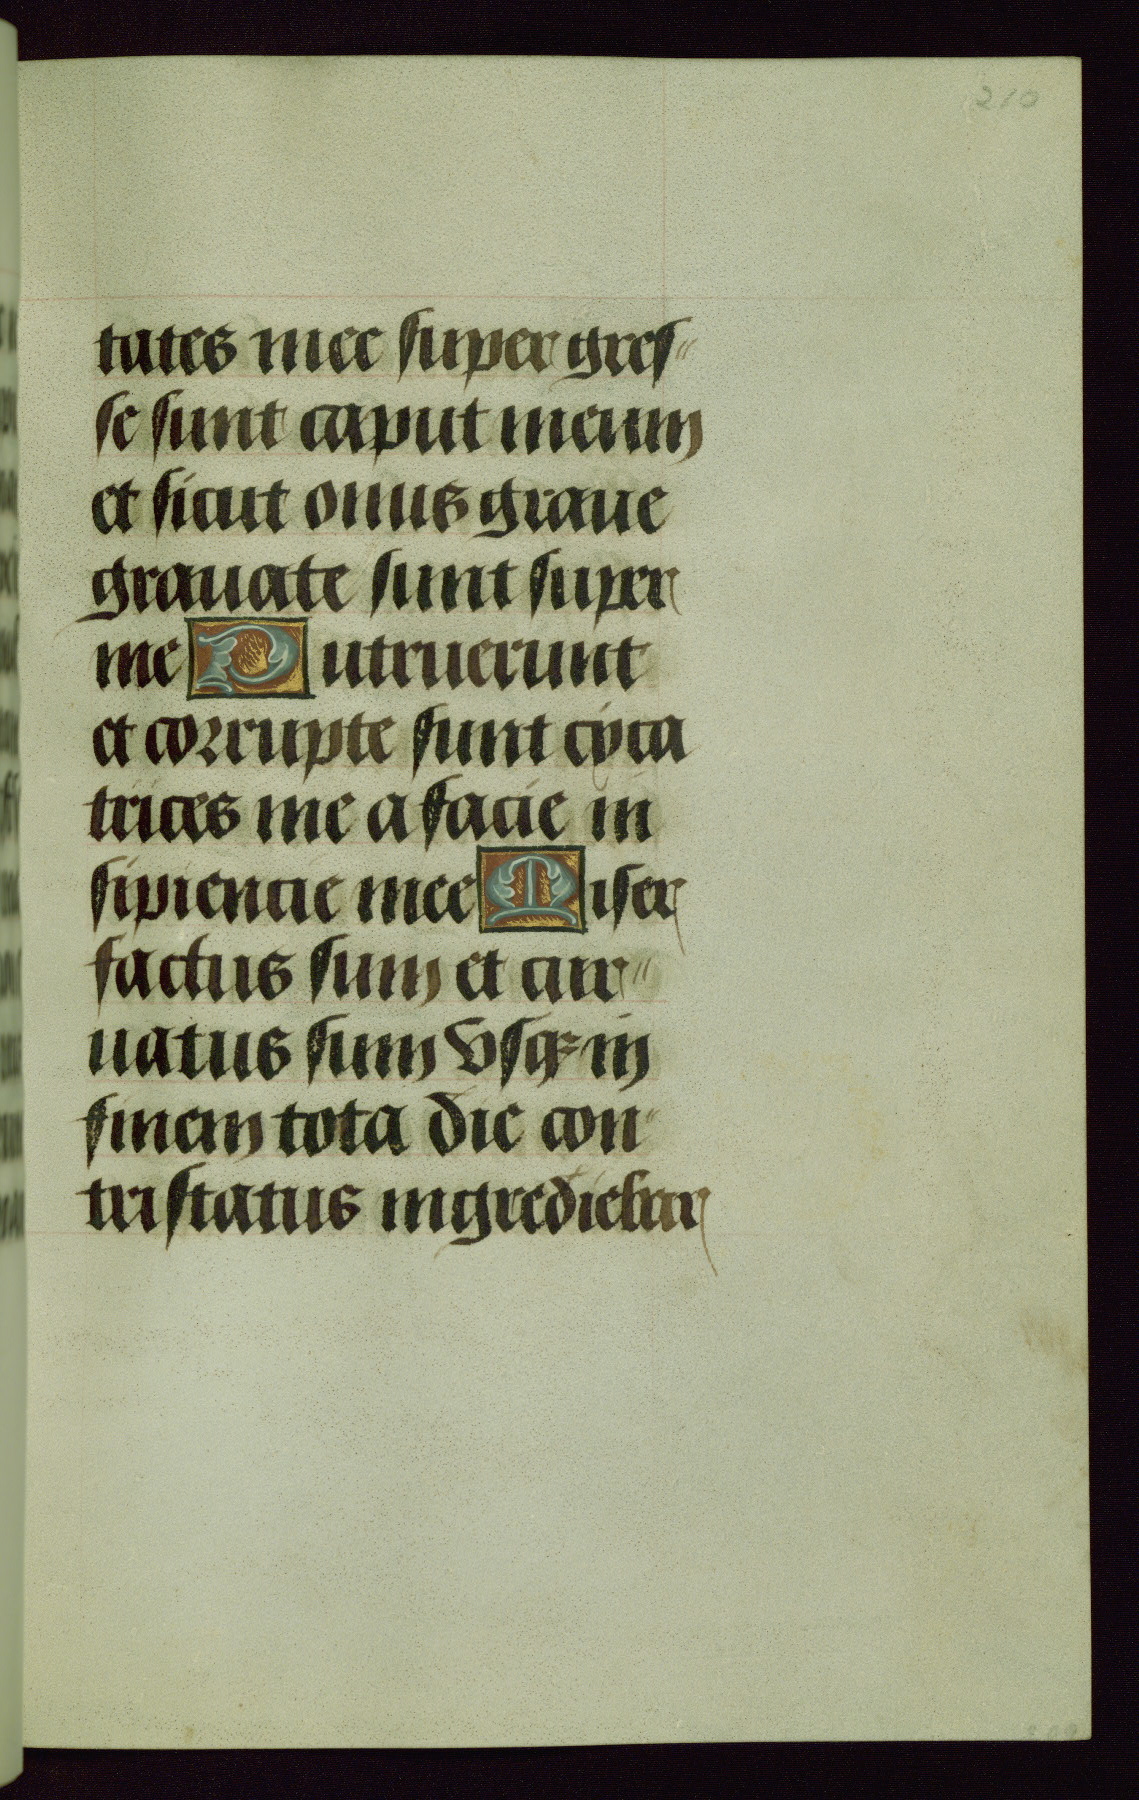 210
tates mee super gres-
se sunt caput meum
et sicut onus graue
grauate sunt super
me Putruerunt
et corrupte sunt cyca
trices me a facie in
sipiencie mee Miser
factus sum et cur-
uatus sum vsqꝫ in
finem tota die con-
tristatus ingrediebar